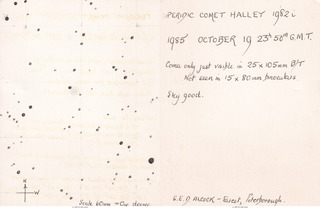 PERIODIC COMET HALLEY 1982 i
1985 OCTOBER 19 23h 50m G.M.T.
Coma only just visible in 25 x 105mm B/T
Not seen in 15 x 80mm binoculars
Sky good.
N
W
Scale 60mm = One degree
G.E.D ALCOCK - Farcet, Peterborough.